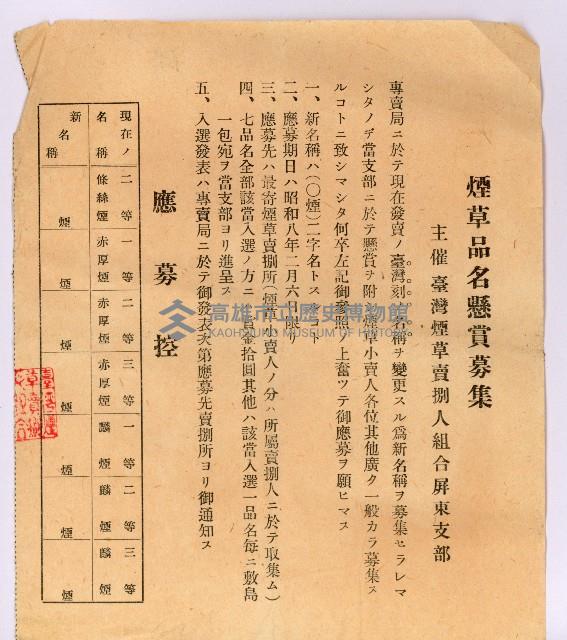 煙草品名懸賞募集
主催臺灣煙草賣捌人組合屏東支部
專賣局ニ於テ現在發賣ノ臺灣刻ノ名稱ヲ變更スル爲新名稱ヲ募集セラレマ
シタノデ當支部ニ於テ懸賞ヲ附シ煙草小賣人各位其他廣ク一般カラ募集ス
ルコトニ致シマシタ何卒左記御參照ノ上奮ツテ御應募ヲ願ヒマス
一、新名稱ハ(〇煙)二字名トスルコト
二、應募期日ハ昭和八年二月六日限
三、應募先ハ最寄煙草賣捌所(煙草小賣人ノ分ハ所屬賣捌人ニ於テ取集ム)
四、七品名全部該當入選ノ方ニ賞金拾圓其他ハ該當入選一品名每ニ敷島
一包宛ヲ當支部ヨリ進呈ス
五、入選發表ハ專賣局ニ於テ御發表次第應募先賣捌所ヨリ御通知ス
應募控
現在ノ名稱 二等條絲煙 一等赤厚煙 二等赤厚煙 三等赤厚煙 一等麟煙 二等麟煙 三等麟煙
新名稱 煙 煙 煙 煙 煙 煙 煙
高雄市立歷史博物館
KAOHSIUNG MUSEUM OF HISTORY